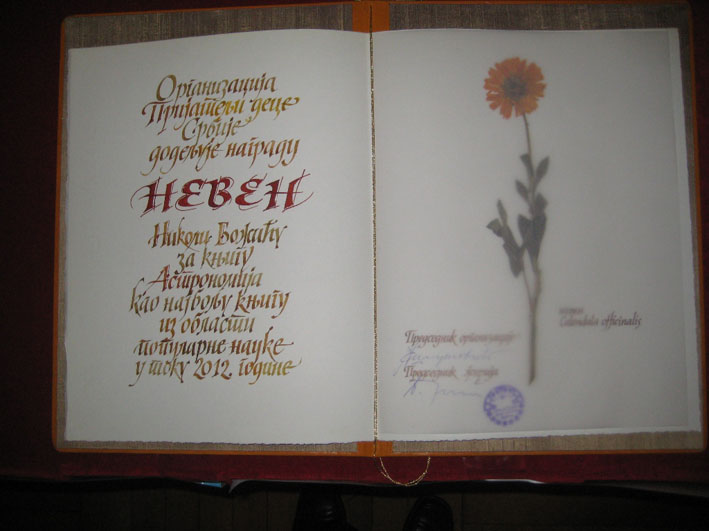 Организација
Пријатељи деце
Србије
додељује награду
НЕВЕН
Николи Божићу
за књигу
Астрономија
као најбољу књигу
из области
популарне науке
у току 2012. године
Calendula officinalis
Председник организације
Председник жирија